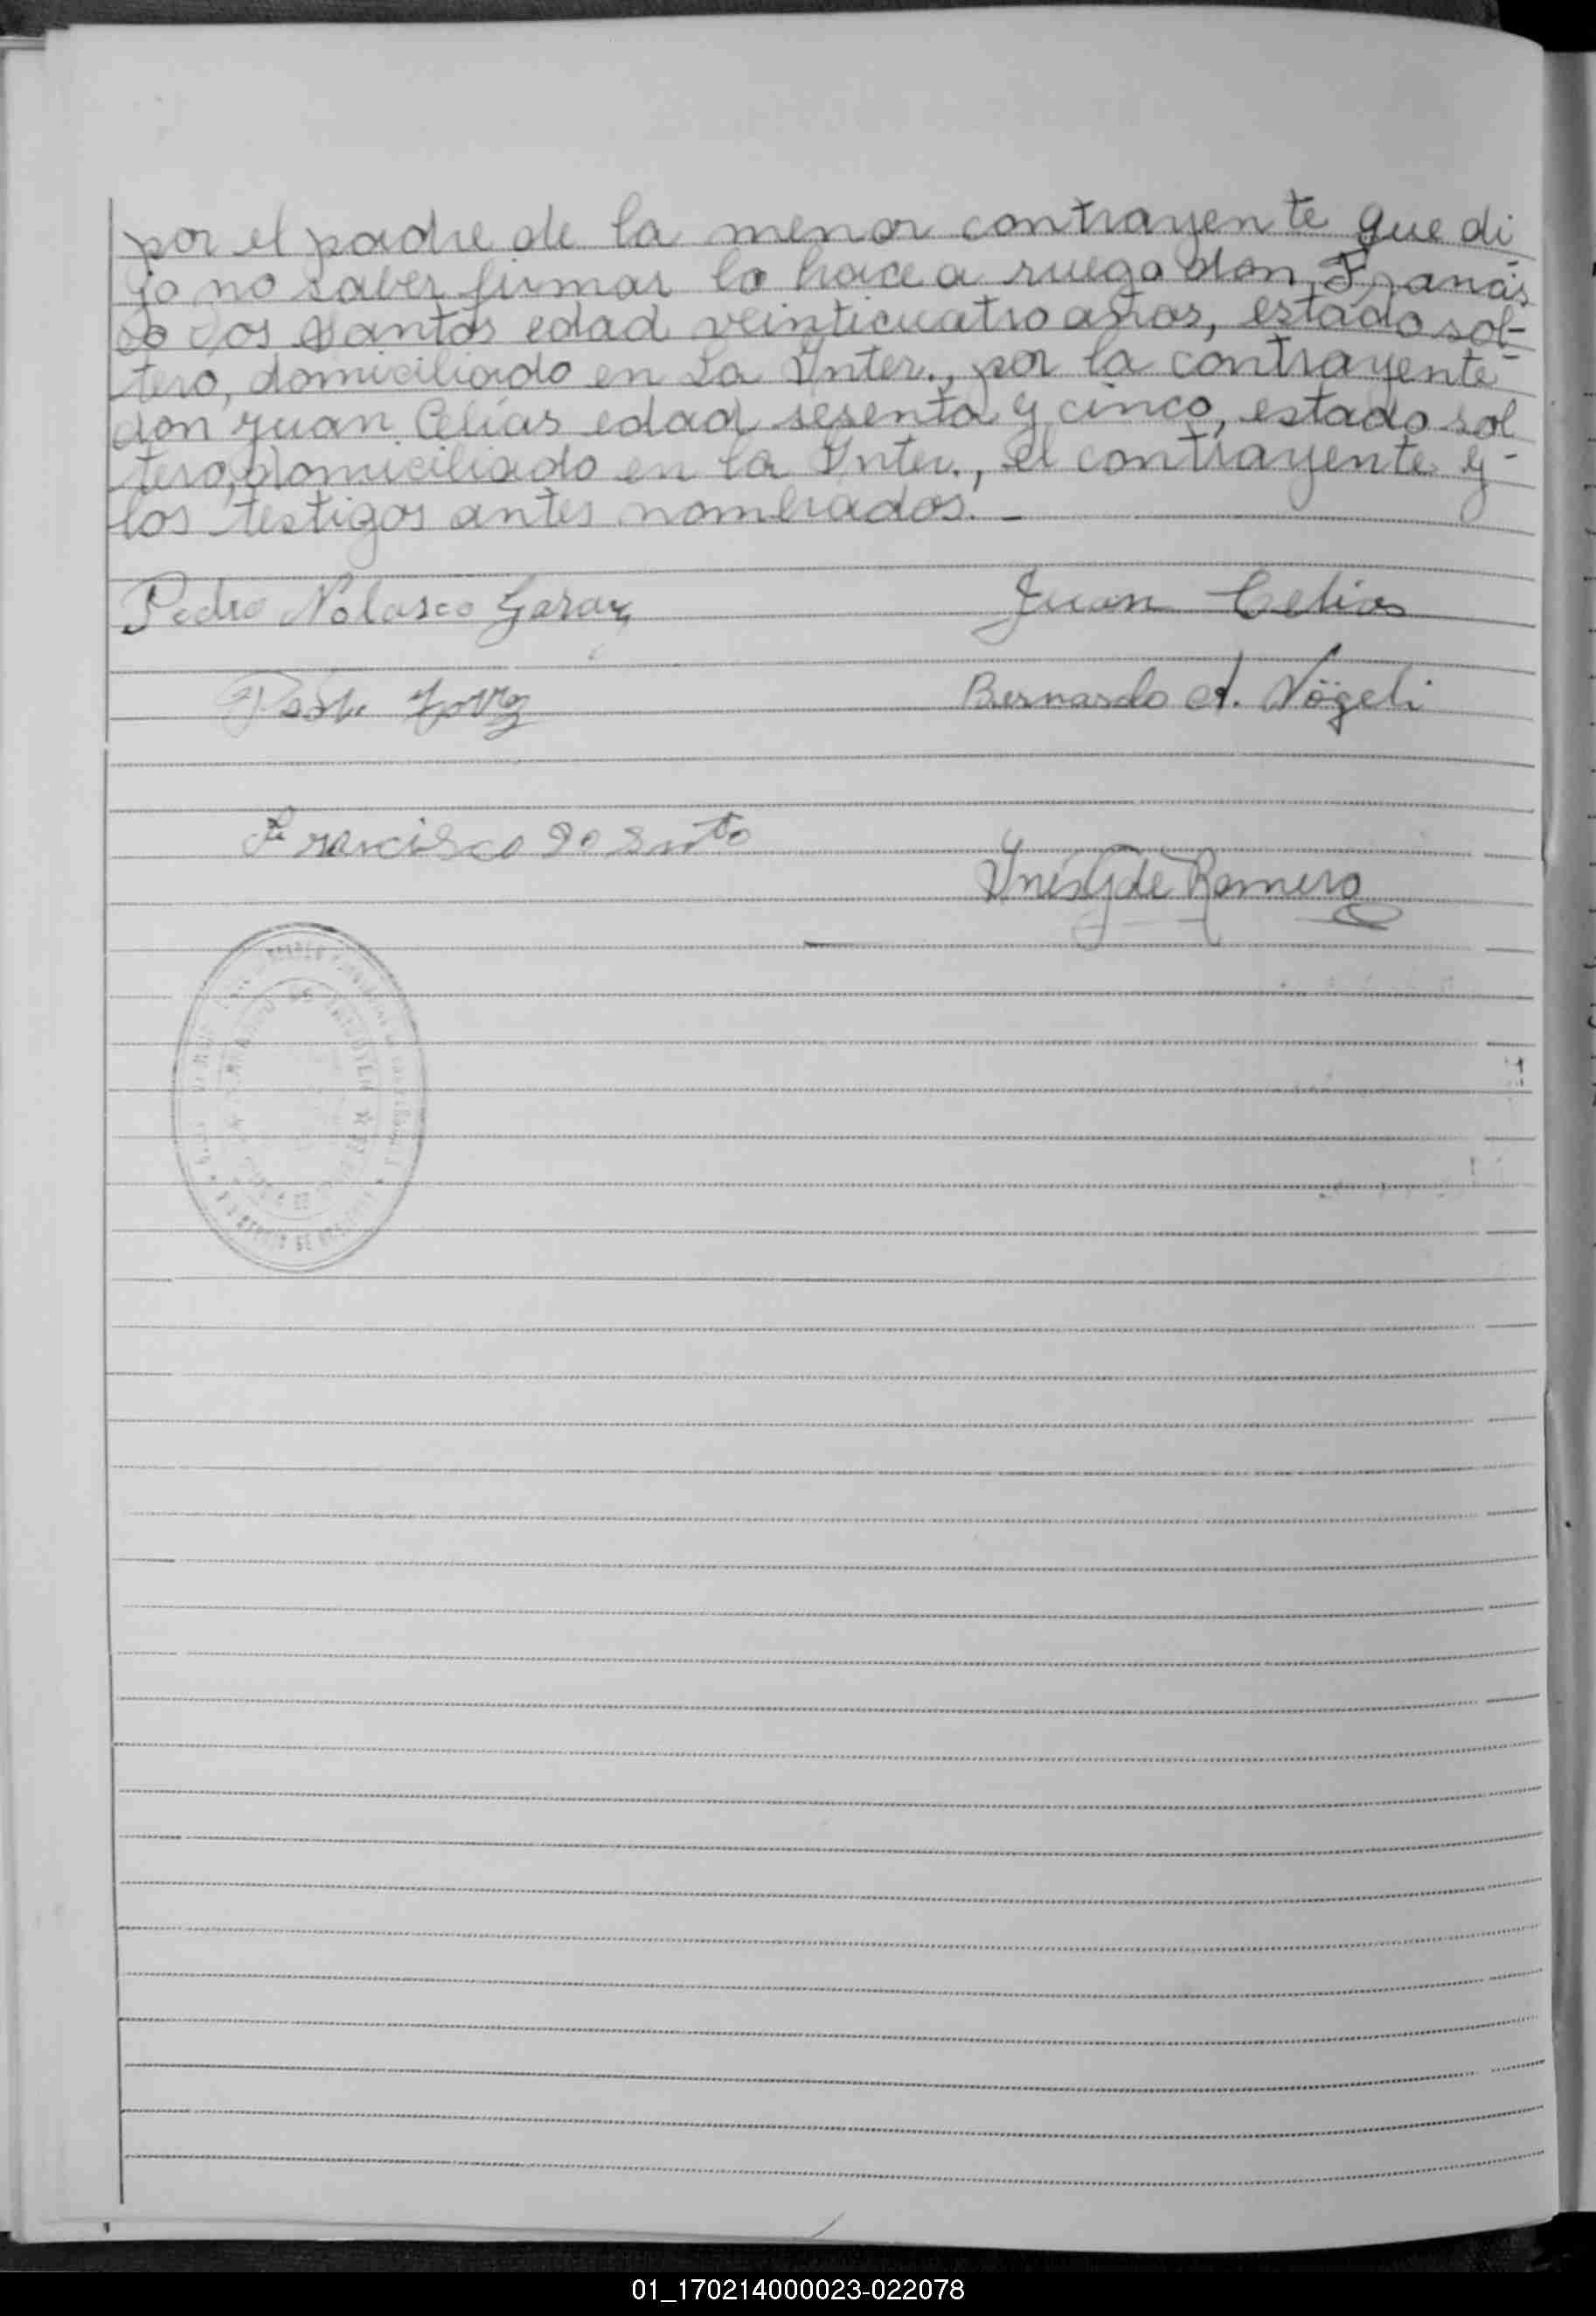 por el padre de la menor contrayente que di
jo no saber firmar lo hace a ruego don Francis
co Dos Santos edad veinticuatro años, estado sol-
tero, domiciliado en La Inter., por la contrayente
don Juan Celias edad sesenta y cinco, estado sol
tero, domiciliado en la Inter., el contrayente y
los testigos antes nombrados. -
Pedro Nolasco Garay
Juan Celias
Bernardo A. Nögeli
Francisco Do Santo
Inés G de Romero
01_170214000023-022078